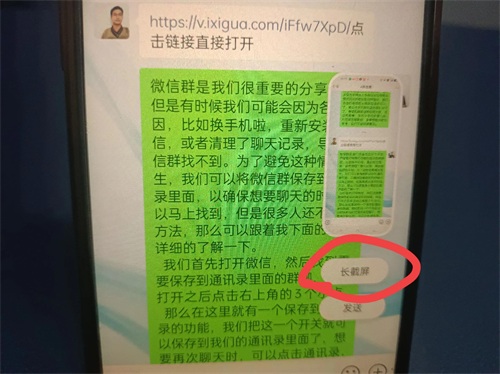 https://v.ixigua.com/iFfw7XpD/点
击链接直接打开
微信群是我们很重要的分享
但是有时候我们可能会因为各
因，比如换手机啦，重新安装
信，或者清理了聊天记录，导
信群找不到。为了避免这种情
生，我们可以将微信群保存到
录里面，以确保想要聊天的时
以马上找到，但是很多人还不
方法，那么可以跟着我下面的
详细的了解一下。
我们首先打开微信，然后找到
要保存到通讯录里面的群
打开之后点击右上角的3个小
那么在这里就有一个保存到
录的功能，我们把这一个开关就可
以保存到我们的通讯录里面了，想
要再次聊天时，可以点击通讯录，
长截屏
发送